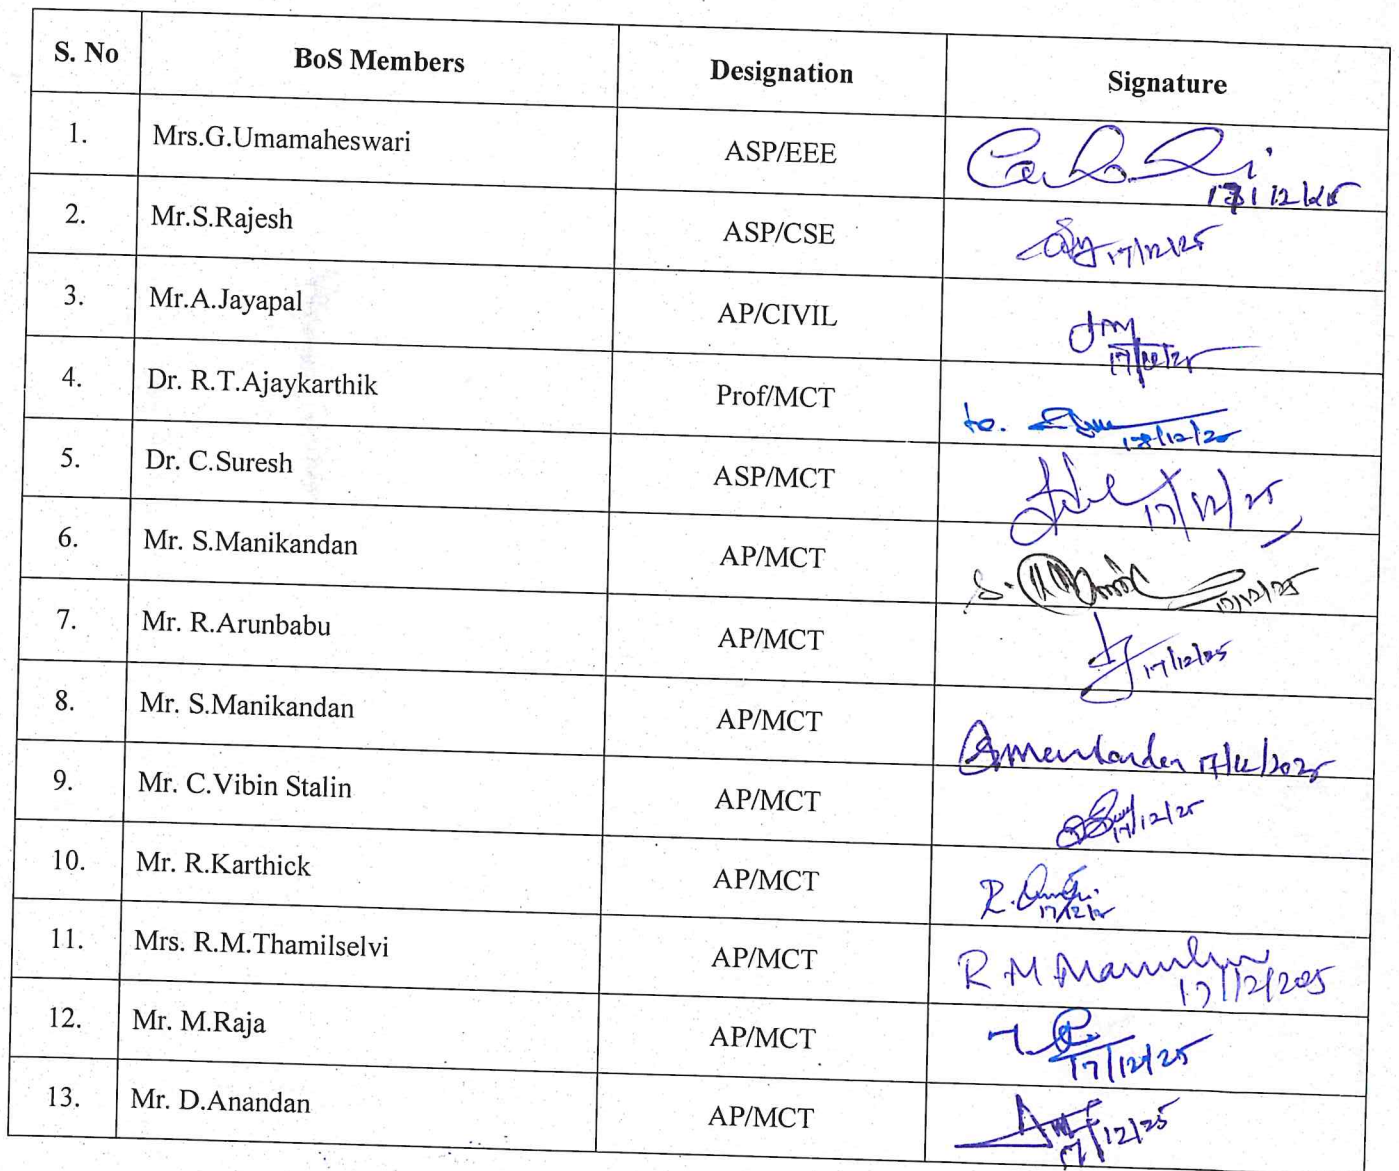 S. No BoS Members Designation Signature
1. Mrs.G.Umamaheswari ASP/EEE
2. Mr.S.Rajesh ASP/CSE 17/12/25
3. Mr.A.Jayapal AP/CIVIL
4. Dr. R.T.Ajaykarthik Prof/MCT
5. Dr. C.Suresh ASP/MCT 17/12/25
6. Mr. S.Manikandan AP/MCT S. 17/12/25
7. Mr. R.Arunbabu AP/MCT 17/12/25
8. Mr. S.Manikandan AP/MCT 17/12/2025
9. Mr. C.Vibin Stalin AP/MCT 17/12/25
10. Mr. R.Karthick AP/MCT R.
11. Mrs. R.M.Thamilselvi AP/MCT R M
12. Mr. M.Raja AP/MCT 17/12/25
13. Mr. D.Anandan AP/MCT 17/12/25